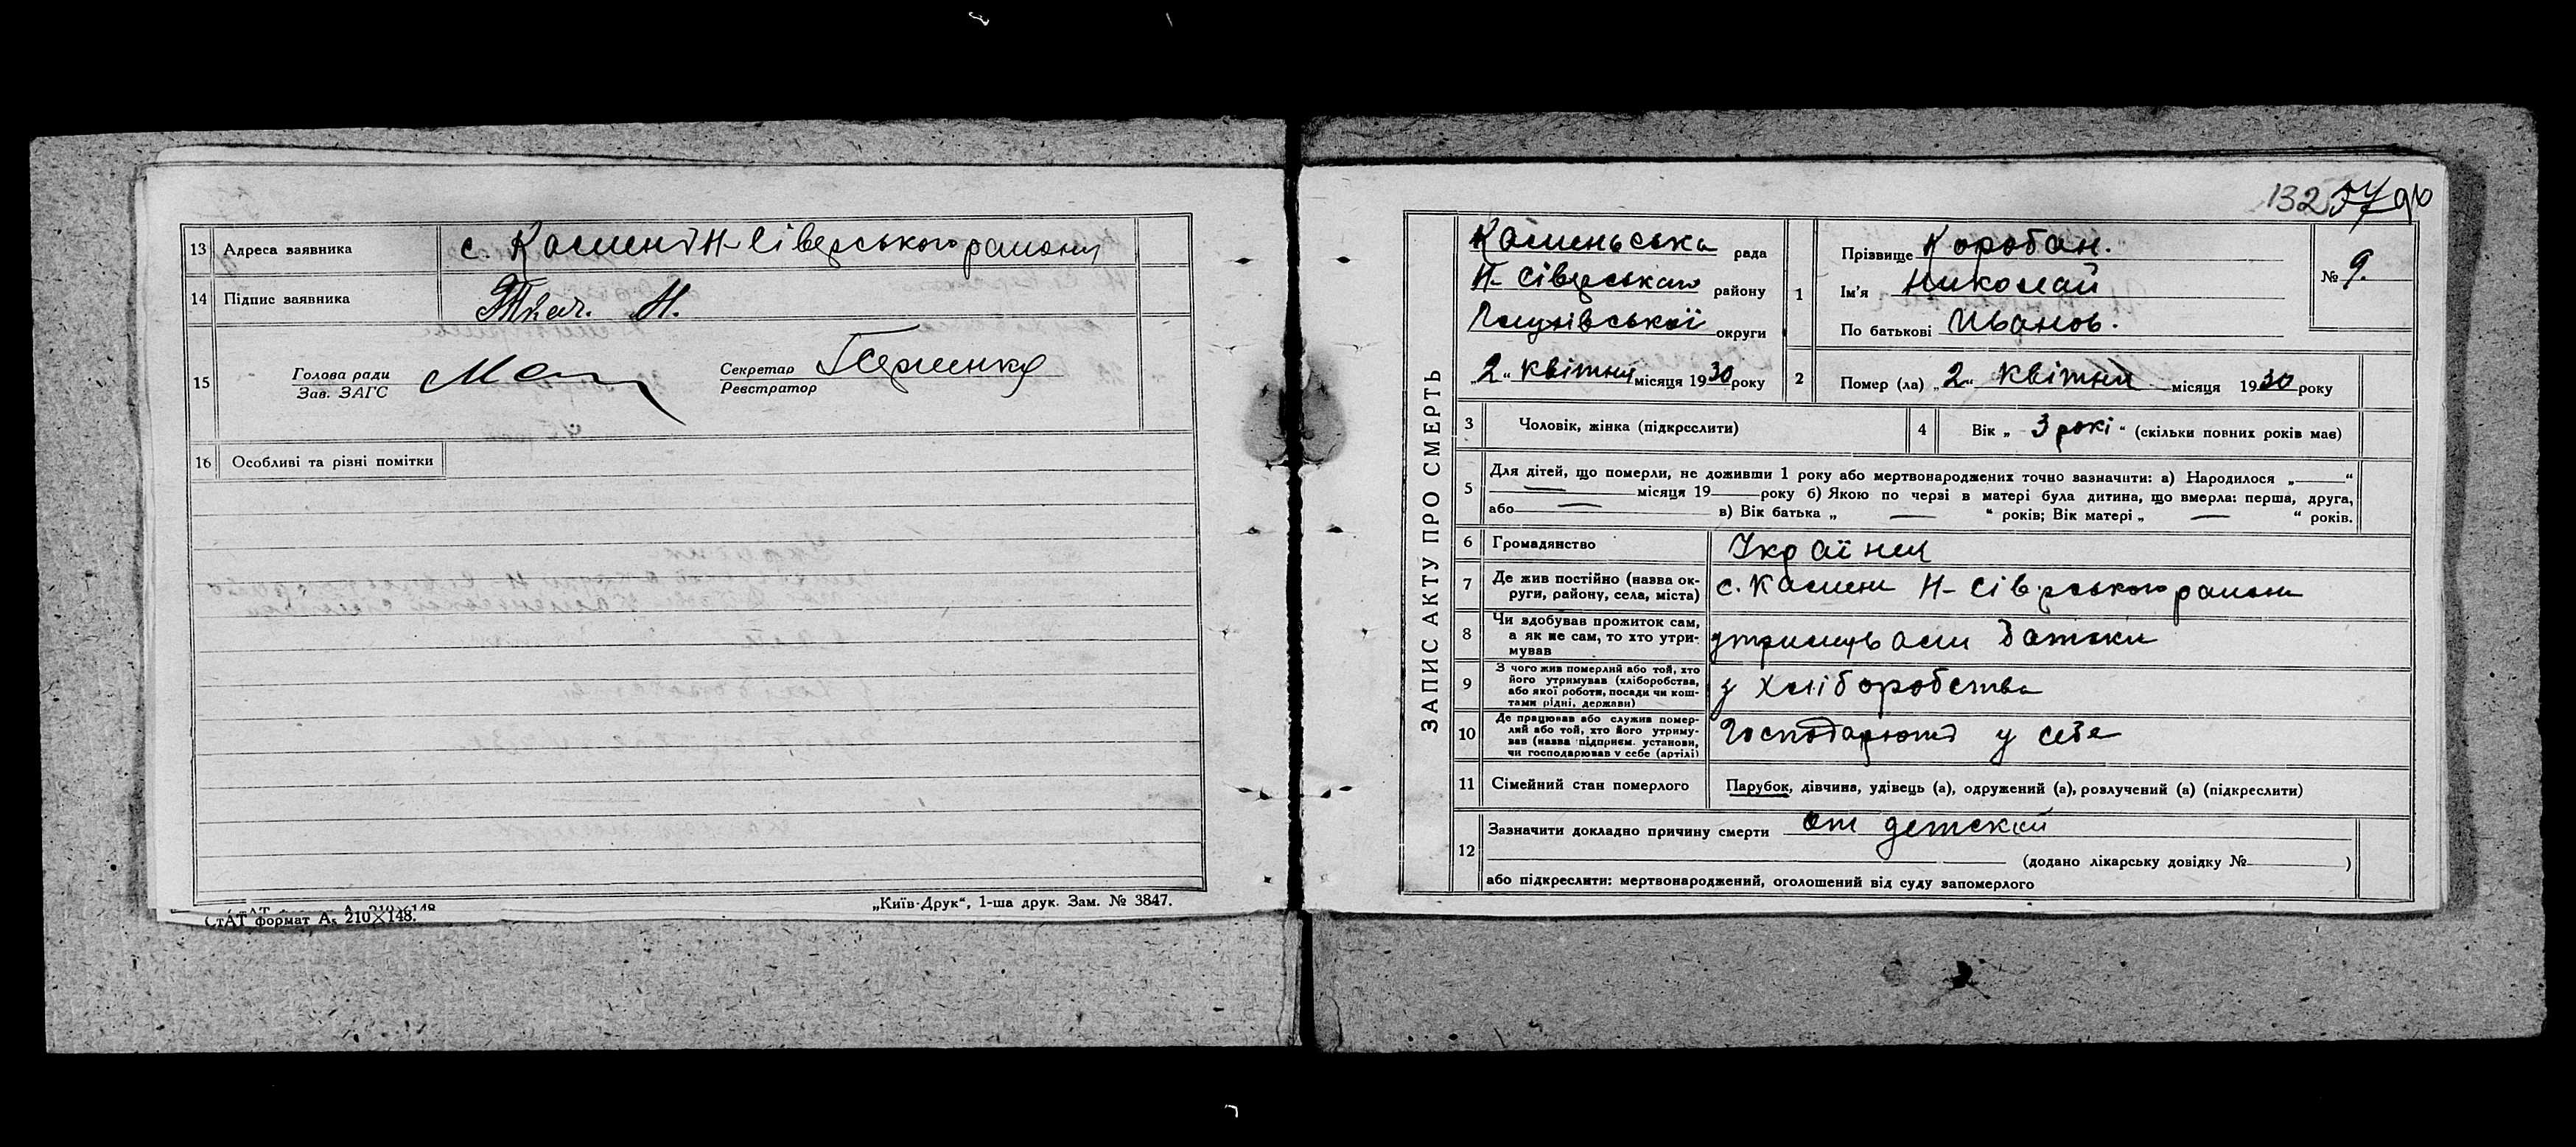 13 Адреса заявника с. Камень Н-Сіверського району
14 Підпис заявника Ткач. Н.
15 Голова ради
Зав. ЗАГС
Секретар
Реєстратор
16 Особливі та різні помітки
СтАТ формат А₅ 210×148.
„Київ-Друк“, 1-ша друк. Зам. № 3847.
132
ЗАПИС АКТУ ПРО СМЕРТЬ
Каменьська рада
Н-Сіверського району
Глухівської округи
„2“ квітня місяця 1930 року
1 Прізвище Коробан.
Ім'я Николай
По батькові Иванов.
№ 9.
2 Помер (ла) „2“ квітня місяця 1930 року
3 Чоловік, жінка (підкреслити)
4 Вік „3 рокі“ (скільки повних років має)
5 Для дітей, що померли, не доживши 1 року або мертвонароджених точно зазначити: а) Народилося „—“
— місяця 19— року б) Якою по черзі в матері була дитина, що вмерла: перша, друга,
або — в) Вік батька „ — “ років; Вік матері „ — “ років.
6 Громадянство Україння
7 Де жив постійно (назва ок-
руги, району, села, міста) с. Камень Н-Сіверського району
8 Чи здобував прожиток сам,
а як не сам, то хто утри-
мував утримували батьки
9 З чого жив померлий або той, хто
його утримував (хліборобства,
або якої роботи, посади чи кош-
тами рідні, держави) з хліборобства
10 Де працював або служив помер-
лий або той, хто його утриму-
вав (назва підприєм. установи,
чи господарював у себе (артілі) Господарюют у себе
11 Сімейний стан померлого Парубок, дівчина, удівець (а), одружений (а), розлучений (а) (підкреслити)
12 Зазначити докладно причину смерти от детский
(додано лікарську довідку №— )
або підкреслити: мертвонароджений, оголошений від суду запомерлого